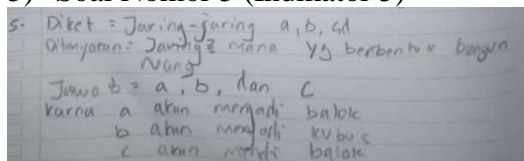 3) Soal Nomor 5 (Indikator 5)
5. Diket = Jaring-jaring a, b, c,d
Ditanyakan: Jaring2 mana yg berbentuk bangun
Ruang
Jawab = a, b, dan c
karna a akan menjadi balok
b akan menjadi kubus
c akan menjdi balok